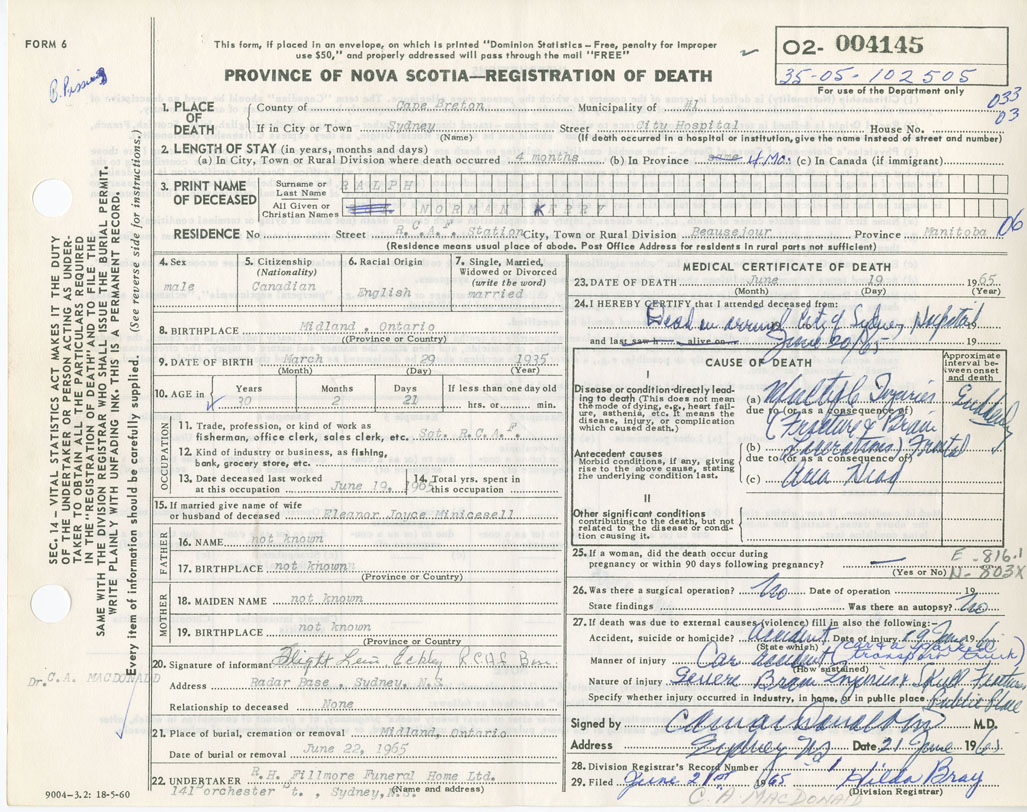 FORM 6
This form, if placed in an envelope, on which is printed "Dominion Statistics – Free, penalty for improper
use $50," and properly addressed will pass through the mail "FREE"
PROVINCE OF NOVA SCOTIA—REGISTRATION OF DEATH
02- 004145
35-05-102505
For use of the Department only
033
03
1. PLACE OF DEATH
County of Cape Breton Municipality of #1
If in City or Town Sydney Street City Hospital House No.
(Name) (If death occurred in a hospital or institution, give the name instead of street and number)
2. LENGTH OF STAY (in years, months and days)
(a) In City, Town or Rural Division where death occurred 4 months (b) In Province 4 Mo. (c) In Canada (if immigrant)
3. PRINT NAME OF DECEASED
Surname or Last Name RALPH
All Given or Christian Names NORMAN KERRY
RESIDENCE No Street R.C.A.F. Station City, Town or Rural Division Beausejour Province Manitoba 06
(Residence means usual place of abode. Post Office Address for residents in rural parts not sufficient)
4. Sex
male
5. Citizenship
(Nationality)
Canadian
6. Racial Origin
English
7. Single, Married,
Widowed or Divorced
(write the word)
married
8. BIRTHPLACE Midland , Ontario
(Province or Country)
9. DATE OF BIRTH March 29 1935
(Month) (Day) (Year)
10. AGE in
Years Months Days If less than one day old
30 2 21 hrs. or min.
OCCUPATION
11. Trade, profession, or kind of work as
fisherman, office clerk, sales clerk, etc. Sgt. R.C.A.F.
12. Kind of industry or business, as fishing,
bank, grocery store, etc.
13. Date deceased last worked
at this occupation June 19, 1965
14. Total yrs. spent in
this occupation
15. If married give name of wife
or husband of deceased Eleanor Joyce Minicesell
FATHER
16. NAME not known
17. BIRTHPLACE not known
(Province or Country)
MOTHER
18. MAIDEN NAME not known
19. BIRTHPLACE not known
(Province or Country)
20. Signature of informant Flight
Address Radar Base , Sydney, N.S.
Relationship to deceased None
21. Place of burial, cremation or removal Midland, Ontario
Date of burial or removal June 22, 1965
22. UNDERTAKER R.H. Fillmore Funeral Home Ltd.
141 orchester t. , Sydney,N.S.
(Name and address)
9004–3.2: 18-5-60
MEDICAL CERTIFICATE OF DEATH
23. DATE OF DEATH June 19 1965
(Month) (Day) (Year)
24. I HEREBY CERTIFY that I attended deceased from:
Dead on arrival City of Sydney Hospital
and last saw h alive on June 20/65 19
CAUSE OF DEATH
Approximate interval between onset and death
I
Disease or condition directly leading to death (This does not mean the mode of dying, e.g., heart failure, asthenia, etc. It means the disease, injury, or complication which caused death.)
(a) Multiple Injuries Suddenly
due to (or as a consequence of)
(Fracture & Brain
(b) Lacerations) Frontal
due to (or as a consequence of)
(c) Area Head
Antecedent causes
Morbid conditions, if any, giving rise to the above cause, stating the underlying condition last.
II
Other significant conditions
contributing to the death, but not related to the disease or condition causing it.
25. If a woman, did the death occur during
pregnancy or within 90 days following pregnancy?
(Yes or No)
E - 816.1
N- 803X
26. Was there a surgical operation? No Date of operation 19
State findings Was there an autopsy? No
27. If death was due to external causes (violence) fill in also the following:–
Accident, suicide or homicide? Accident Date of injury 19 June 1965
(State which)
Manner of injury Car accident (Car & Parked Transport Truck)
(How sustained)
Nature of injury Severe Brain Injuries & Skull Fracture
Specify whether injury occurred in Industry, in home, or in public place Public Place
Signed by M.D.
Address Sydney NS Date 21 June 1965
28. Division Registrar's Record Number
29. Filed June 21st 1965 Hilda Bray
(Division Registrar)
C. A MACDONALD
SEC. 14 – VITAL STATISTICS ACT MAKES IT THE DUTY
OF THE UNDERTAKER OR PERSON ACTING AS UNDER-
TAKER TO OBTAIN ALL THE PARTICULARS REQUIRED
IN THE "REGISTRATION OF DEATH" AND TO FILE THE
SAME WITH THE DIVISION REGISTRAR WHO SHALL ISSUE THE BURIAL PERMIT.
WRITE PLAINLY WITH UNFADING INK. THIS IS A PERMANENT RECORD.
Every item of information should be carefully supplied. (See reverse side for instructions.)
Dr. C.A. MACDONALD